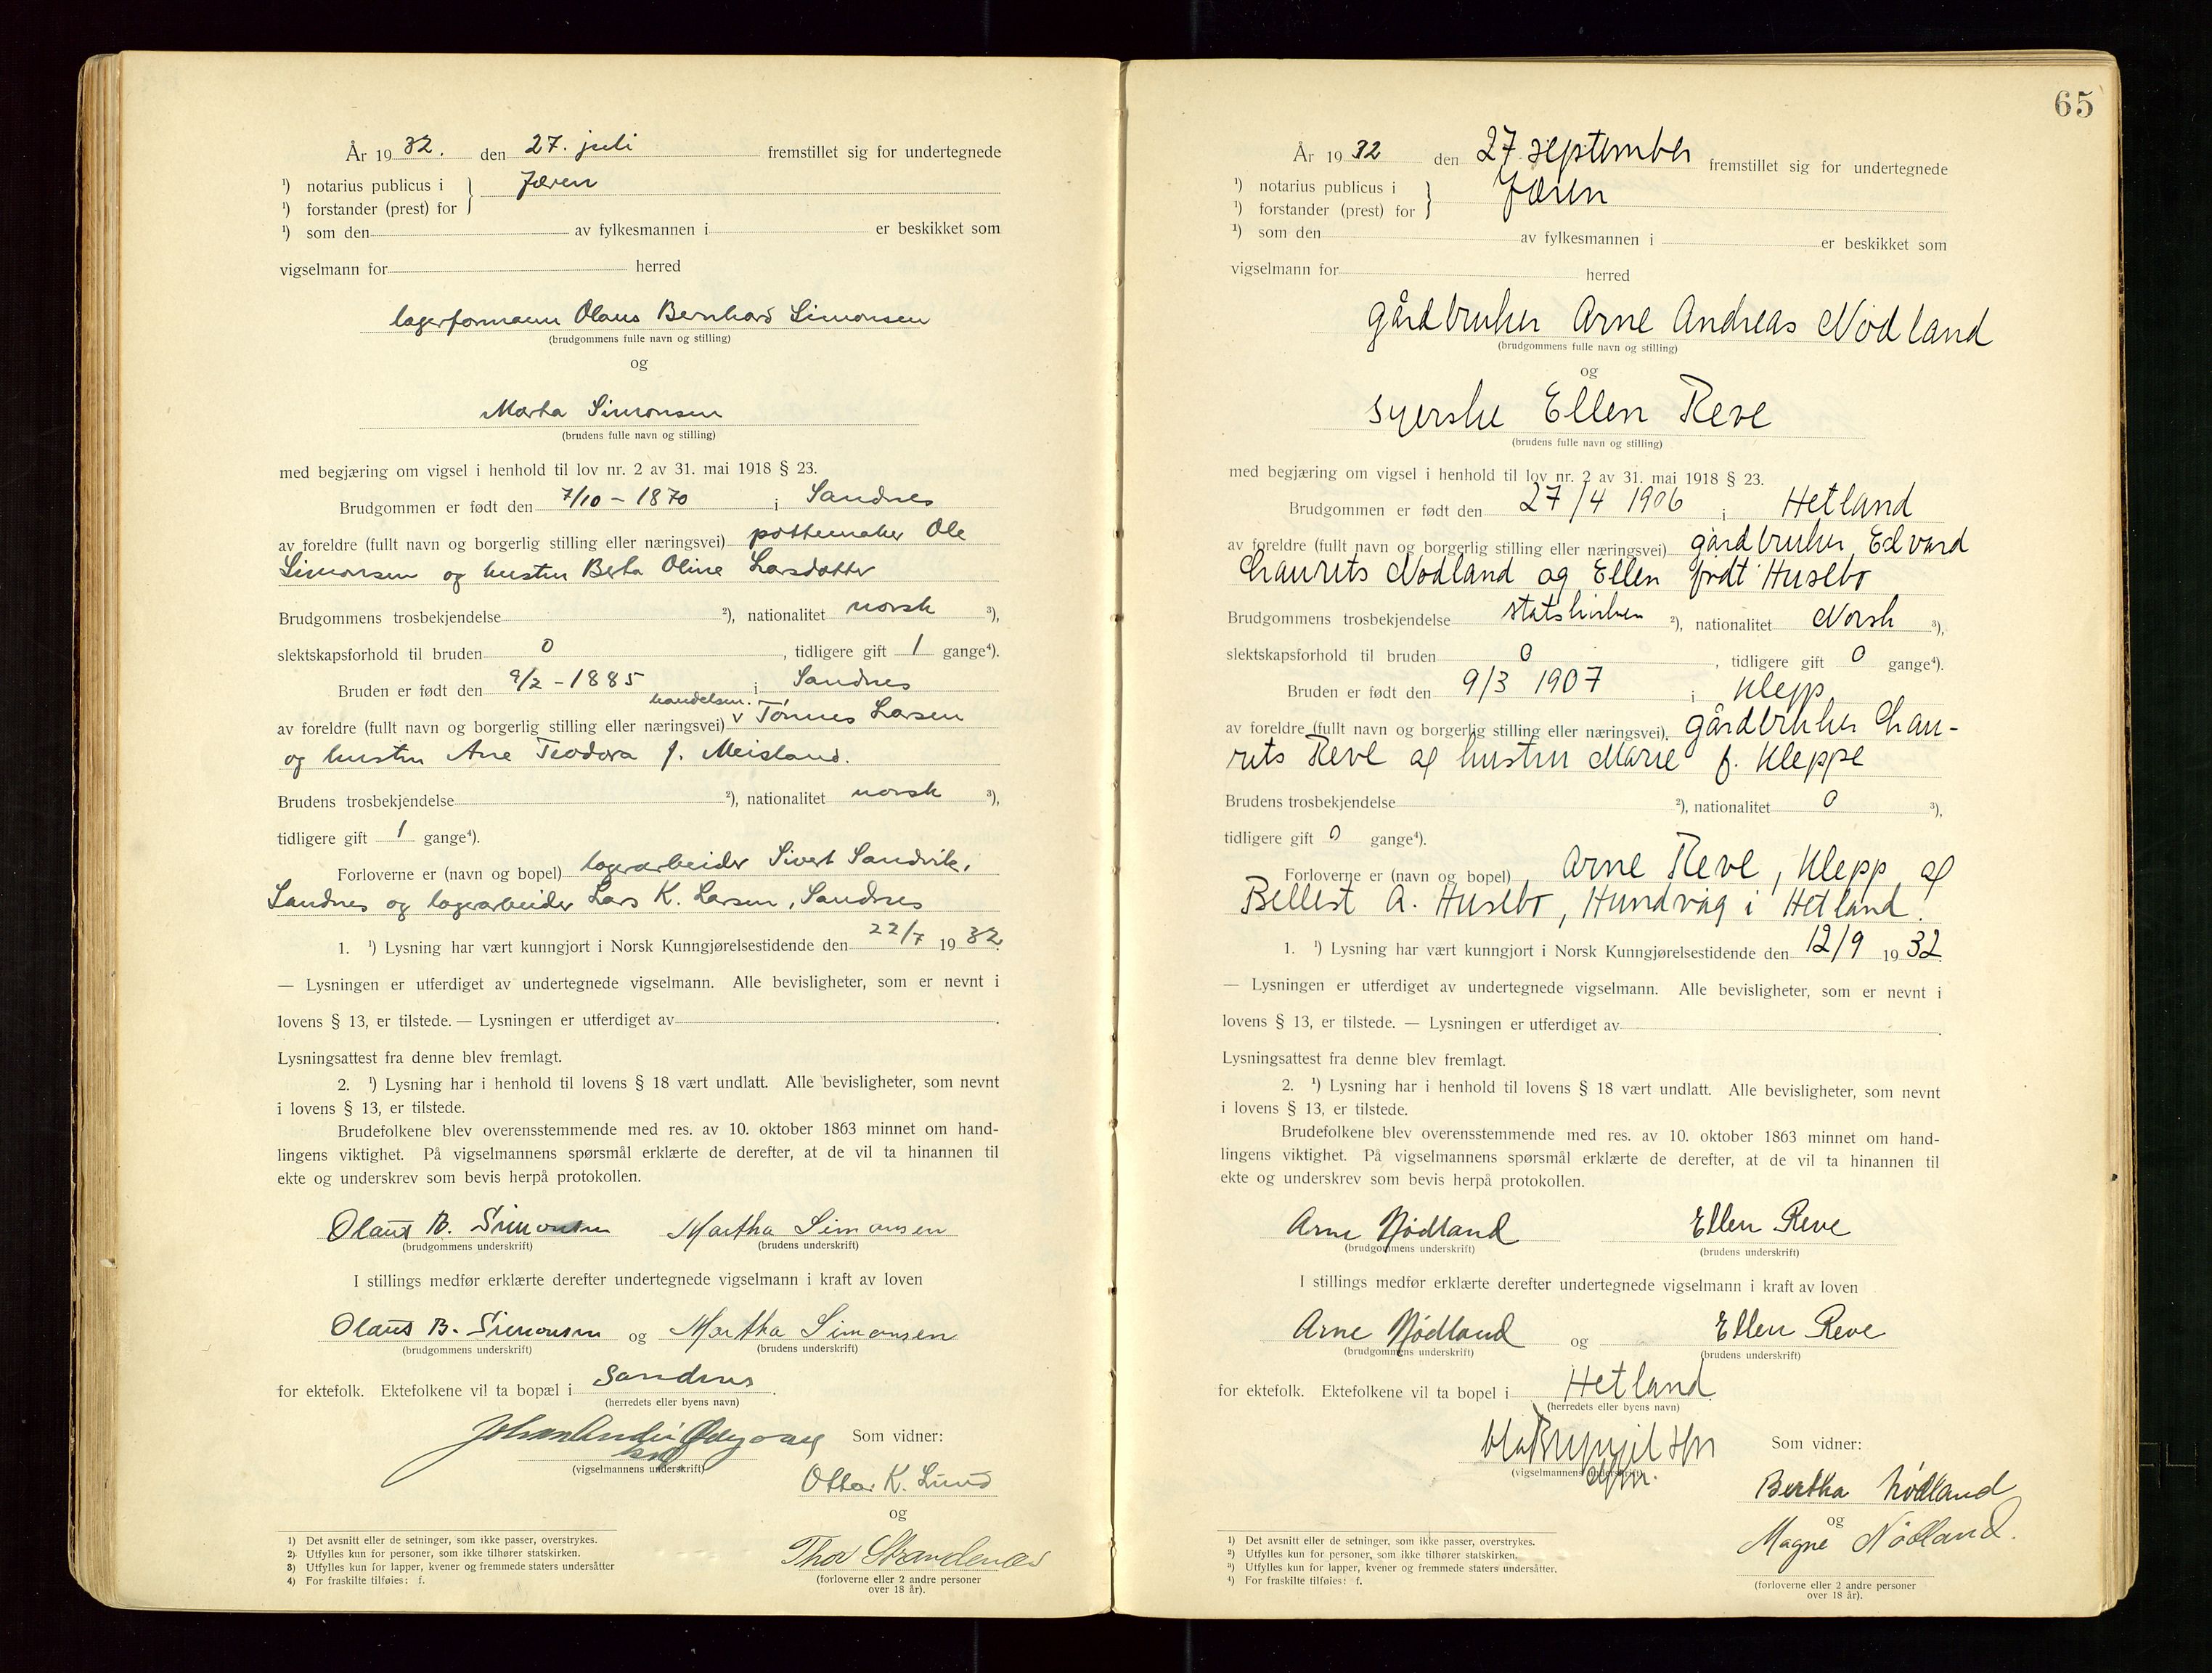 År 19 32. den 27. juli fremstillet sig for undertegnede
¹) notarius publicus i } Jæren
¹) forstander (prest) for
¹) som den av fylkesmannen i er beskikket som
vigselmann for herred
lagerformann Olaus Bernhard Simonsen
(brudgommens fulle navn og stilling)
og
Marta Simonsen
(brudens fulle navn og stilling)
med begjæring om vigsel i henhold til lov nr. 2 av 31. mai 1918 § 23.
Brudgommen er født den 7/10 - 1870 i Sandnes
av foreldre (fullt navn og borgerlig stilling eller næringsvei) pottemaker Ole
Simonsen og hustru Berta Oline Larsdatter
Brudgommens trosbekjendelse ²), nationalitet norsk ³),
slektskapsforhold til bruden 0 , tidligere gift 1 gange⁴).
Bruden er født den 9/2 - 1885 i Sandnes
handelsm.
av foreldre (fullt navn og borgerlig stilling eller næringsvei) v Tønnes Larsen
og hustru Ane Teodora f. Meisland.
Brudens trosbekjendelse ²), nationalitet norsk ³),
tidligere gift 1 gange⁴).
Forloverne er (navn og bopel) lagerarbeider Sivert Sandvik,
Sandnes og lagerarbeider Lars K. Larsen, Sandnes
1. ¹) Lysning har vært kunngjort i Norsk Kunngjørelsestidende den 22/7 19 32.
— Lysningen er utferdiget av undertegnede vigselmann. Alle bevisligheter, som er nevnt i
lovens § 13, er tilstede. — Lysningen er utferdiget av .
Lysningsattest fra denne blev fremlagt.
2. ¹) Lysning har i henhold til lovens § 18 vært undlatt. Alle bevisligheter, som nevnt
i lovens § 13, er tilstede.
Brudefolkene blev overensstemmende med res. av 10. oktober 1863 minnet om hand-
lingens viktighet. På vigselmannens spørsmål erklærte de derefter, at de vil ta hinannen til
ekte og underskrev som bevis herpå protokollen.
Olaus B. Simonsen Martha Simonsen
(brudgommens underskrift) (brudens underskrift)
I stillings medfør erklærte derefter undertegnede vigselmann i kraft av loven
Olaus B. Simonsen og Martha Simonsen
(brudgommens underskrift) (brudens underskrift)
for ektefolk. Ektefolkene vil ta bopæl i Sandnes .
(herredets eller byens navn)
Som vidner:
(vigselmannens underskrift)
Ottar K. Lund
og
Thor Strandenæs
(forloverne eller 2 andre personer
over 18 år).
1) Det avsnitt eller de setninger, som ikke passer, overstrykes.
2) Utfylles kun for personer, som ikke tilhører statskirken.
3) Utfylles kun for lapper, kvener og fremmede staters undersåtter
4) For fraskilte tilføies: f.
65
År 19 32 den 27 september fremstillet sig for undertegnede
¹) notarius publicus i } Jæren
¹) forstander (prest) for
¹) som den av fylkesmannen i er beskikket som
vigselmann for herred
gårdbruker Arne Andreas Nødland
(brudgommens fulle navn og stilling)
og
syerske Ellen Reve
(brudens fulle navn og stilling)
med begjæring om vigsel i henhold til lov nr. 2 av 31. mai 1918 § 23.
Brudgommen er født den 27/4 1906 i Hetland
av foreldre (fullt navn og borgerlig stilling eller næringsvei) gårdbruker Edvard
Laurits Nødland og Ellen født Husebø
Brudgommens trosbekjendelse statskirken ²), nationalitet Norsk ³),
slektskapsforhold til bruden 0 , tidligere gift 0 gange⁴).
Bruden er født den 9/3 1907 i Klepp
av foreldre (fullt navn og borgerlig stilling eller næringsvei) gårdbruker Lau-
rits Reve og hustru Marie f. Kleppe
Brudens trosbekjendelse ²), nationalitet 0 ³),
tidligere gift 0 gange⁴).
Forloverne er (navn og bopel) Arne Reve, Klepp og
Bellest A. Husebø, Hundvåg i Hetland.
1. ¹) Lysning har vært kunngjort i Norsk Kunngjørelsestidende den 12/9 19 32.
— Lysningen er utferdiget av undertegnede vigselmann. Alle bevisligheter, som er nevnt i
lovens § 13, er tilstede. — Lysningen er utferdiget av .
Lysningsattest fra denne blev fremlagt.
2. ¹) Lysning har i henhold til lovens § 18 vært undlatt. Alle bevisligheter, som nevnt
i lovens § 13, er tilstede.
Brudefolkene blev overensstemmende med res. av 10. oktober 1863 minnet om hand-
lingens viktighet. På vigselmannens spørsmål erklærte de derefter, at de vil ta hinannen til
ekte og underskrev som bevis herpå protokollen.
Arne Nødland Ellen Reve
(brudgommens underskrift) (brudens underskrift)
I stillings medfør erklærte derefter undertegnede vigselmann i kraft av loven
Arne Nødland og Ellen Reve
(brudgommens underskrift) (brudens underskrift)
for ektefolk. Ektefolkene vil ta bopel i Hetland.
(herredets eller byens navn)
Som vidner:
(vigselmannens underskrift)
Bertha Nødland
og
Magne Nødland.
(forloverne eller 2 andre personer
over 18 år).
¹) Det avsnitt eller de setninger, som ikke passer, overstrykes.
²) Utfylles kun for personer, som ikke tilhører statskirken.
³) Utfylles kun for lapper, kvener og fremmede staters undersåtter.
⁴) For fraskilte tilføies: f.